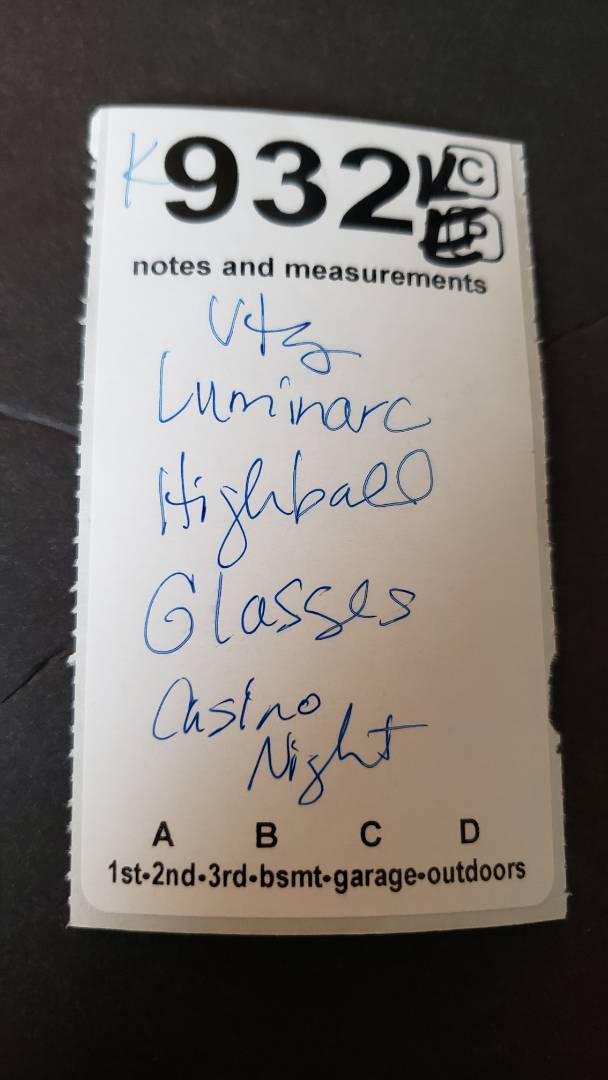 K932K C
P
notes and measurements
Vtg
Luminarc
Highball
Glasses
Casino
Night
A B C D
1st•2nd•3rd•bsmt•garage•outdoors